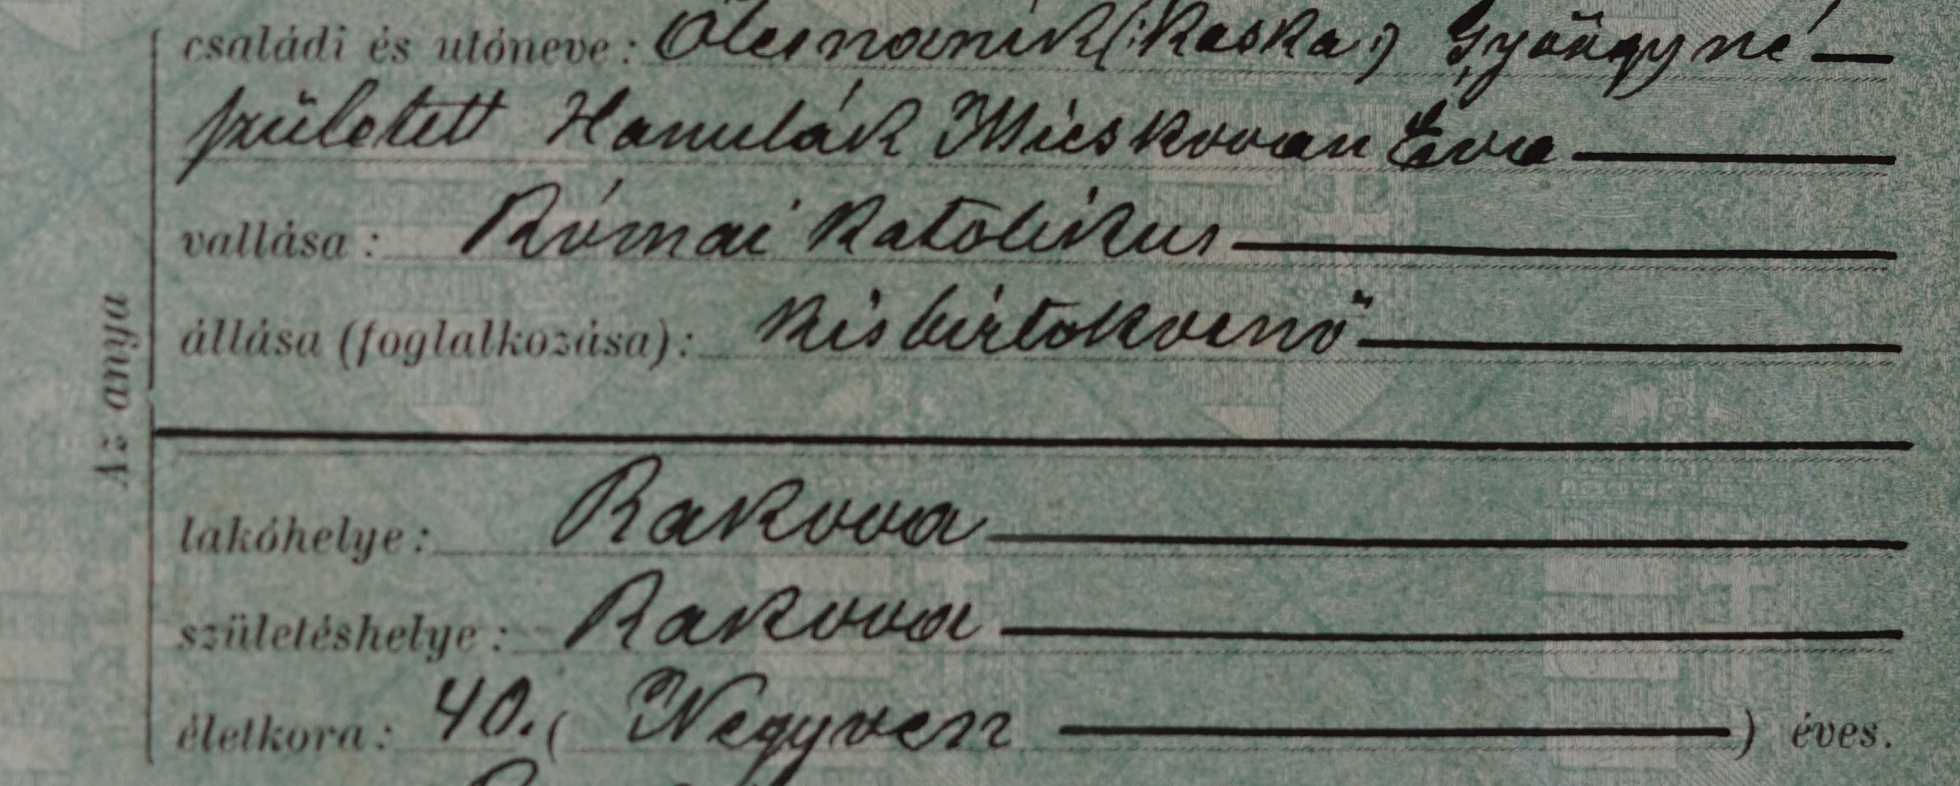 Az anya
családi és utóneve: Olesnanik (: Kaska :) Györgyné
született Hanulák Micskovan Éva
vallása: Római Katolikus
állása (foglalkozása): Kisbirtokosnő
lakóhelye: Rakova
születéshelye: Rakova
életkora: 40. ( Negyven ) éves.